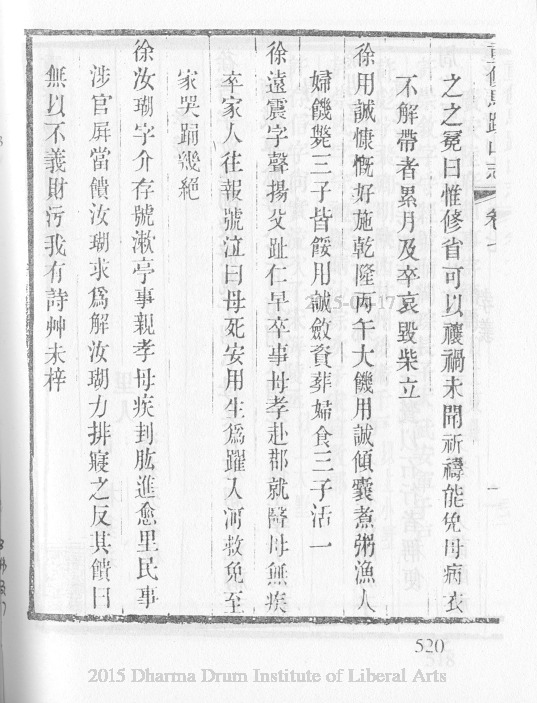 重修馬蹟山志 卷七
之之冤曰惟修省可以禳禍未聞祈禱能免母病衣
不解帶者累月及卒哀毀柴立
徐用誠慷慨好施乾隆丙午大饑用誠傾囊煮粥漁人
婦饑斃三子皆餒用誠斂資葬婦食三子活一
徐遠震字聲揚父趾仁早卒事母孝赴郡就醫母無疾
卒家人往報號泣曰母死安用生爲躍入河救免至
家哭踊幾絕
徐汝瑚字介存號漱亭事親孝母疾刲肱進愈里民事
涉官屏當饋汝瑚求爲解汝瑚力排寢之反其饋曰
無以不義財污我有詩艸未梓
520
2015 Dharma Drum Institute of Liberal Arts